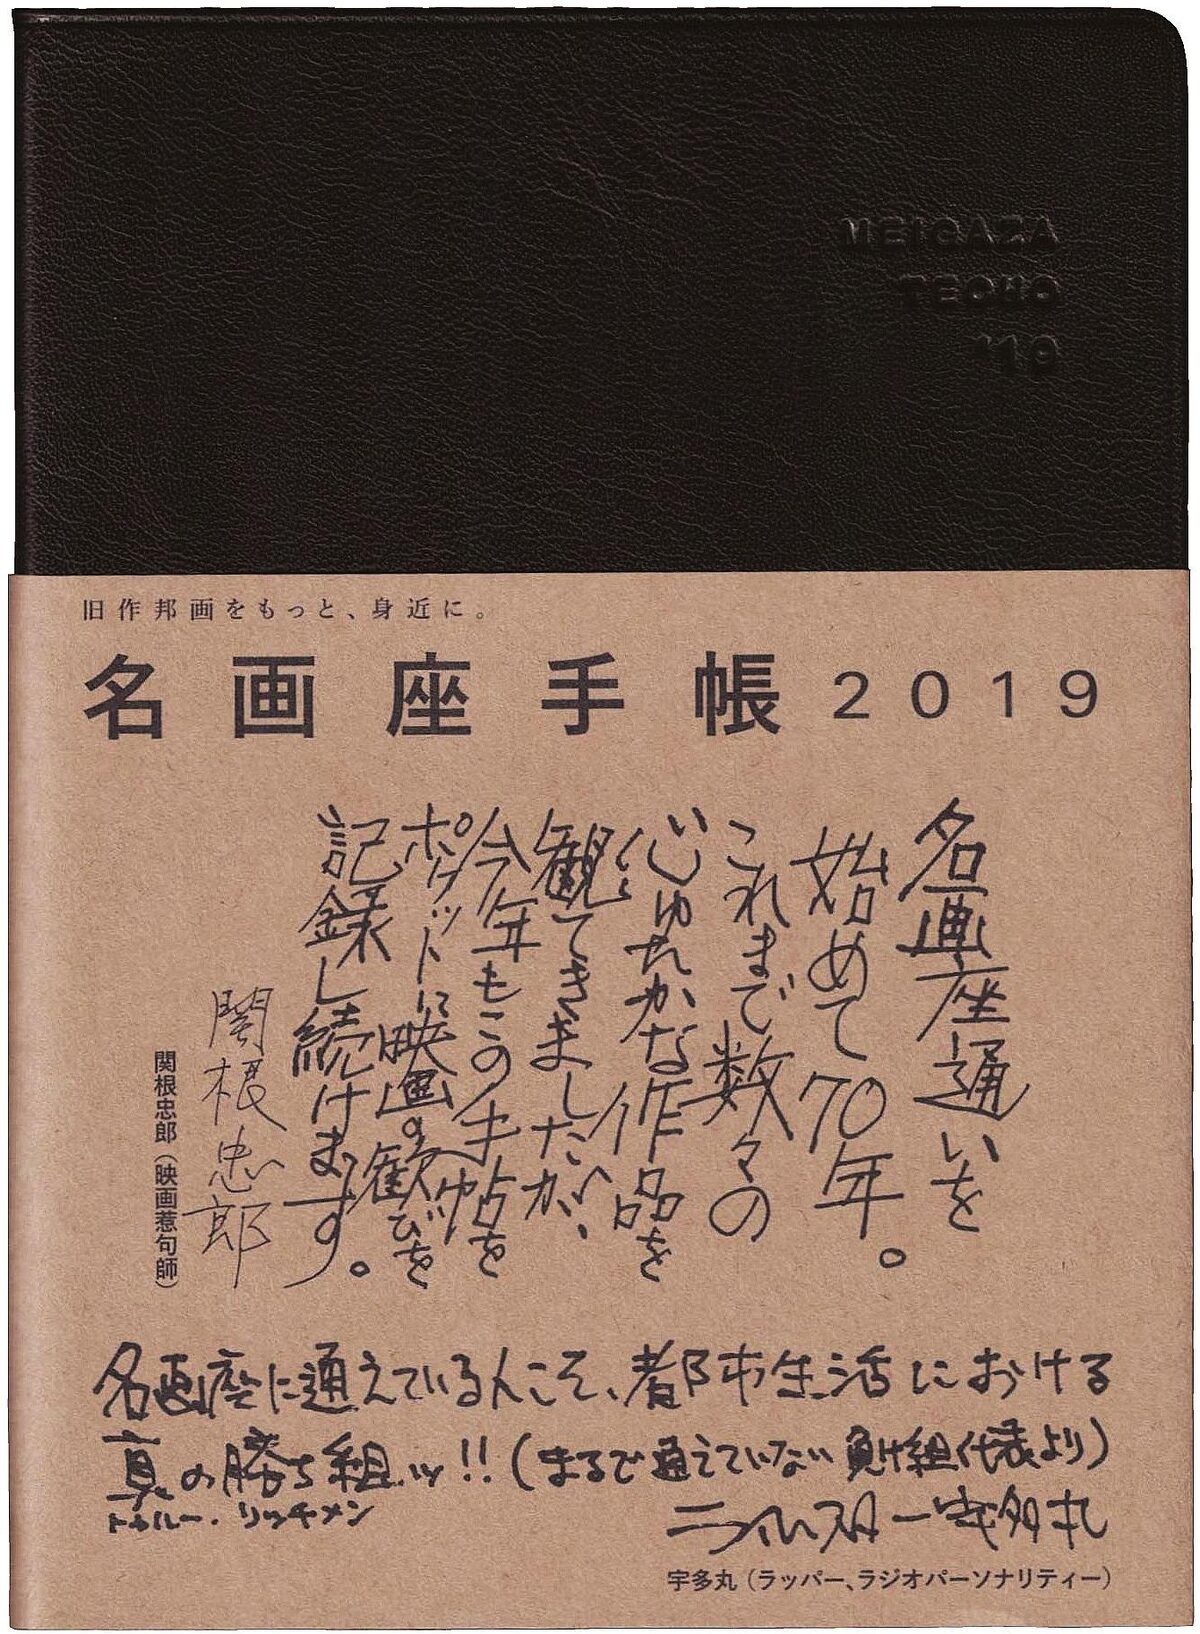 MEIGAZA
TECHO
'19
旧作邦画をもっと、身近に。
名画座手帳2019
名画座通いを
始めて70年。
これまで数々の
心ゆたかな作品を
観てきましたが、
今年もこの手帖を
ポケットに映画の歓びを
記録し続けます。
関根忠郎
関根忠郎（映画惹句師）
名画座に通えている人こそ、都市生活における
真の勝ち組ッ!!(まるで通えていない負け組代表より)
トゥルー・リッチメン
ライムスター宇多丸
宇多丸（ラッパー、ラジオパーソナリティー）